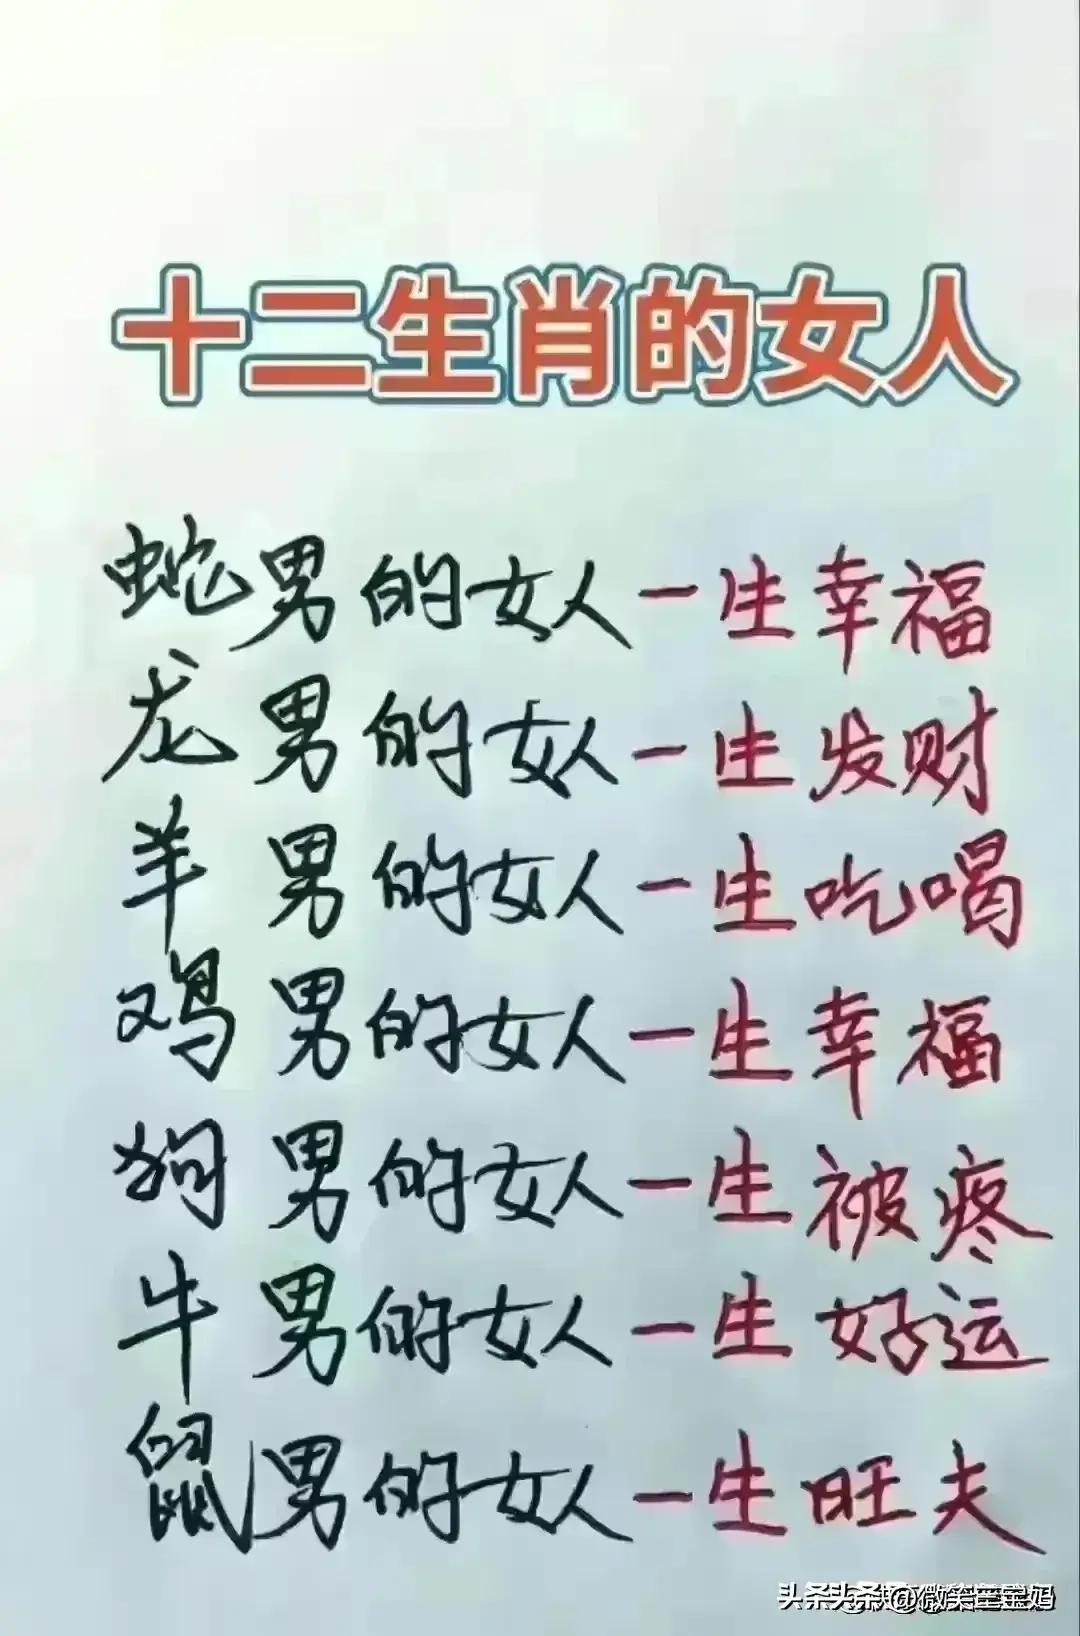 十二生肖的女人
蛇男的女人一生幸福
龙男的女人一生发财
羊男的女人一生吃喝
鸡男的女人一生幸福
狗男的女人一生被疼
牛男的女人一生好运
鼠男的女人一生旺夫
头条 @微笑